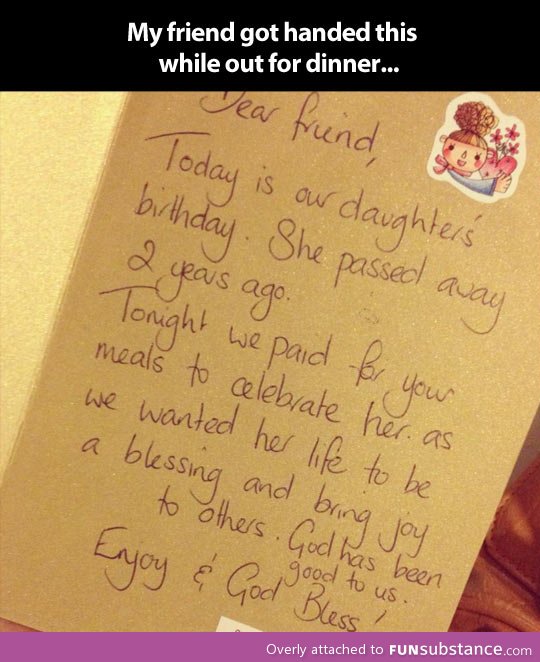 My friend got handed this
while out for dinner...
Dear friend,
Today is our daughters'
birthday. She passed away
2 years ago.
Tonight we paid for your
meals to celebrate her. as
we wanted her life to be
a blessing and bring joy
to others. God has been
good to us.
Enjoy & God Bless!
Overly attached to FUNsubstance.com